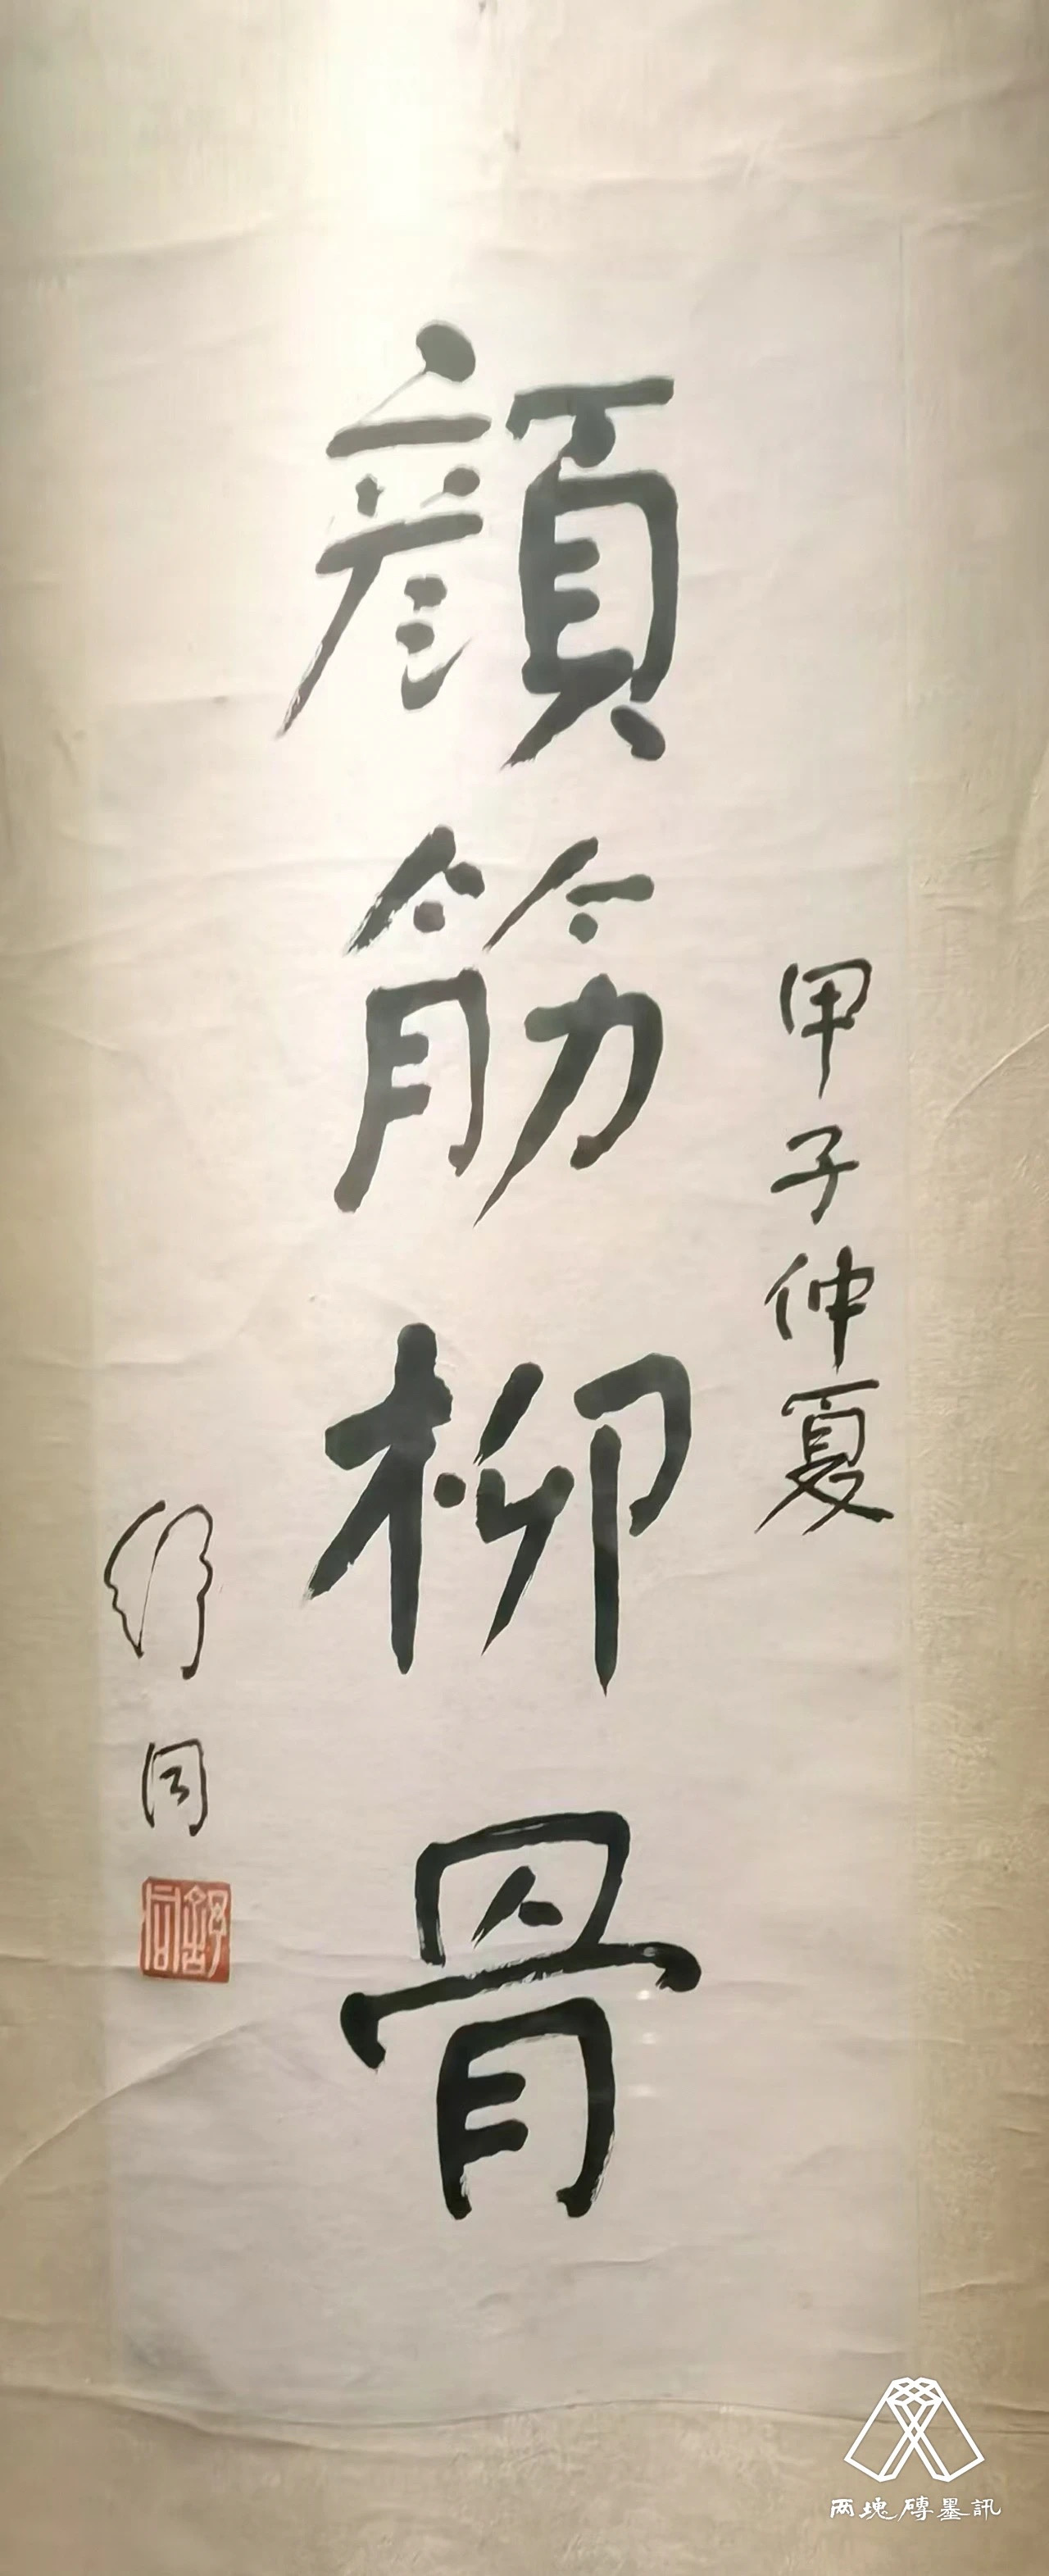 甲子仲夏
顔筋柳骨
舒同
舒同
两塊磚墨訊